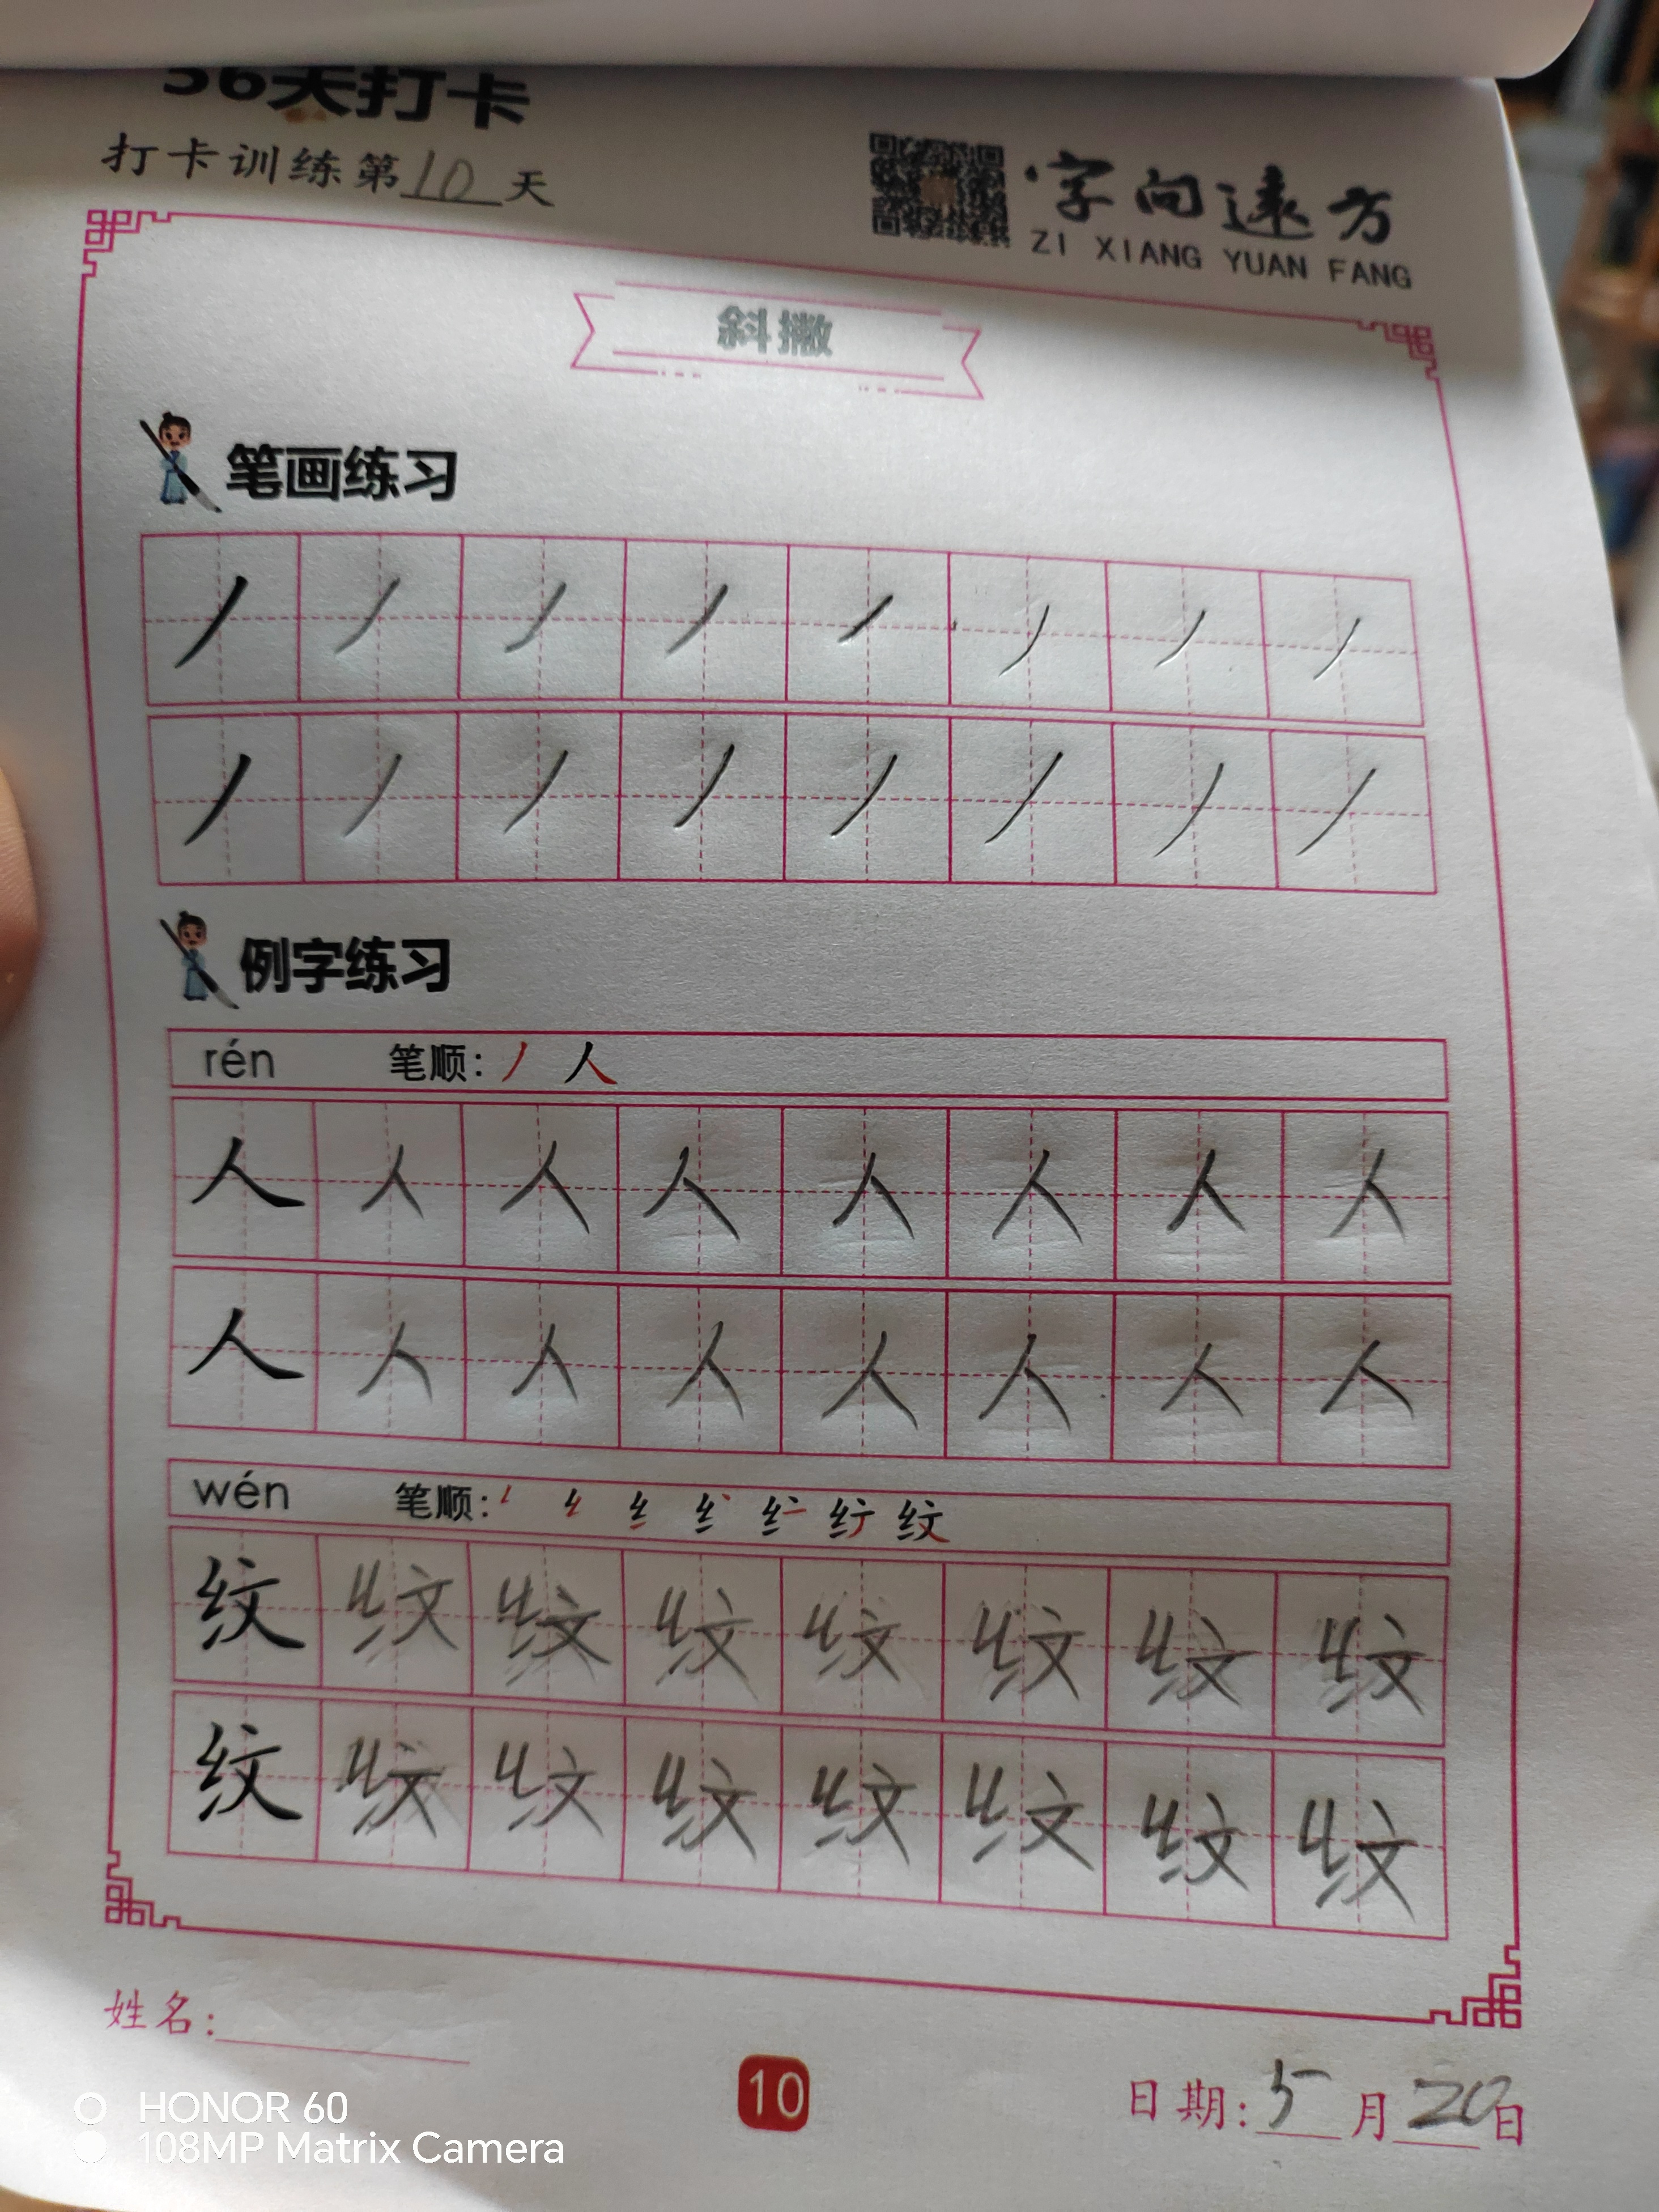 36天打卡
打卡训练第10天
字向远方
ZI XIANG YUAN FANG
斜撇
笔画练习
丿 丿 丿 丿 丿 丿 丿 丿
丿 丿 丿 丿 丿 丿 丿 丿
例字练习
rén 笔顺: 丿 人
人 人 人 人 人 人 人 人
人 人 人 人 人 人 人 人
wén 笔顺: 纹
纹 纹 纹 纹 纹 纹 纹 纹
纹 纹 纹 纹 纹 纹 纹 纹
姓名:
10
日期: 5月20日
HONOR 60
108MP Matrix Camera